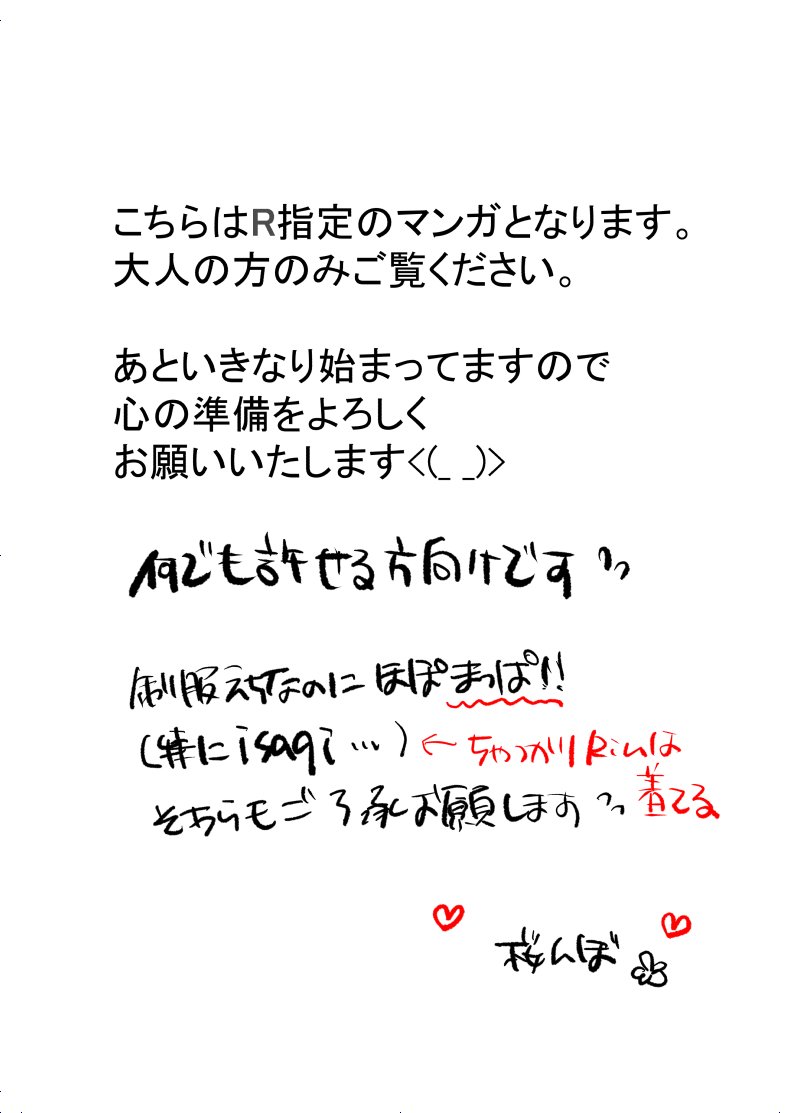 こちらはR指定のマンガとなります。
大人の方のみご覧ください。
あといきなり始まってますので
心の準備をよろしく
お願いいたします<(_ _)>
何でも許せる方向けです
制服えちなのにほぼまっぱ!!
(特にisagi…)←ちゃっかりRinは
着てる
そちらもご了承お願します
桜んぼ